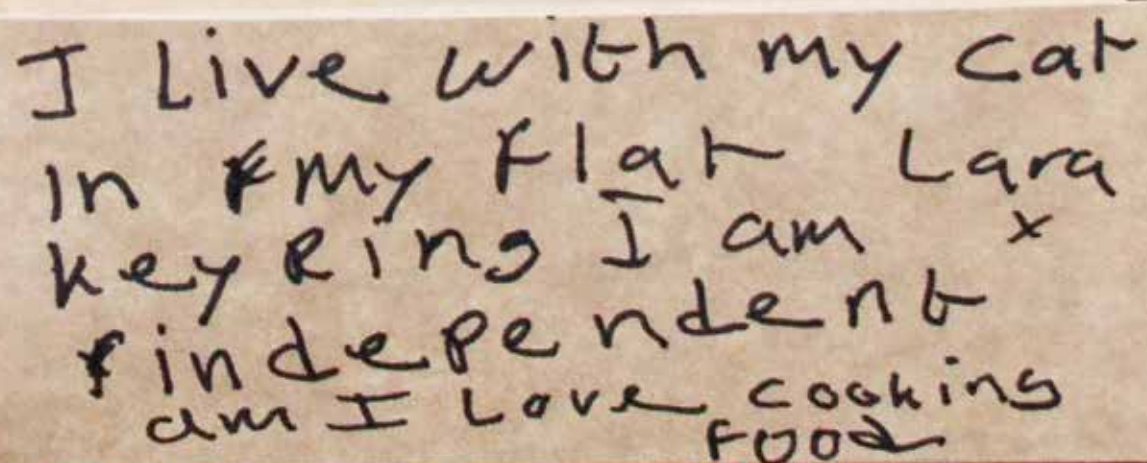 I Live with my cat
In my Flat Lara
key Ring I am x
independent
am I Love cooking
Food